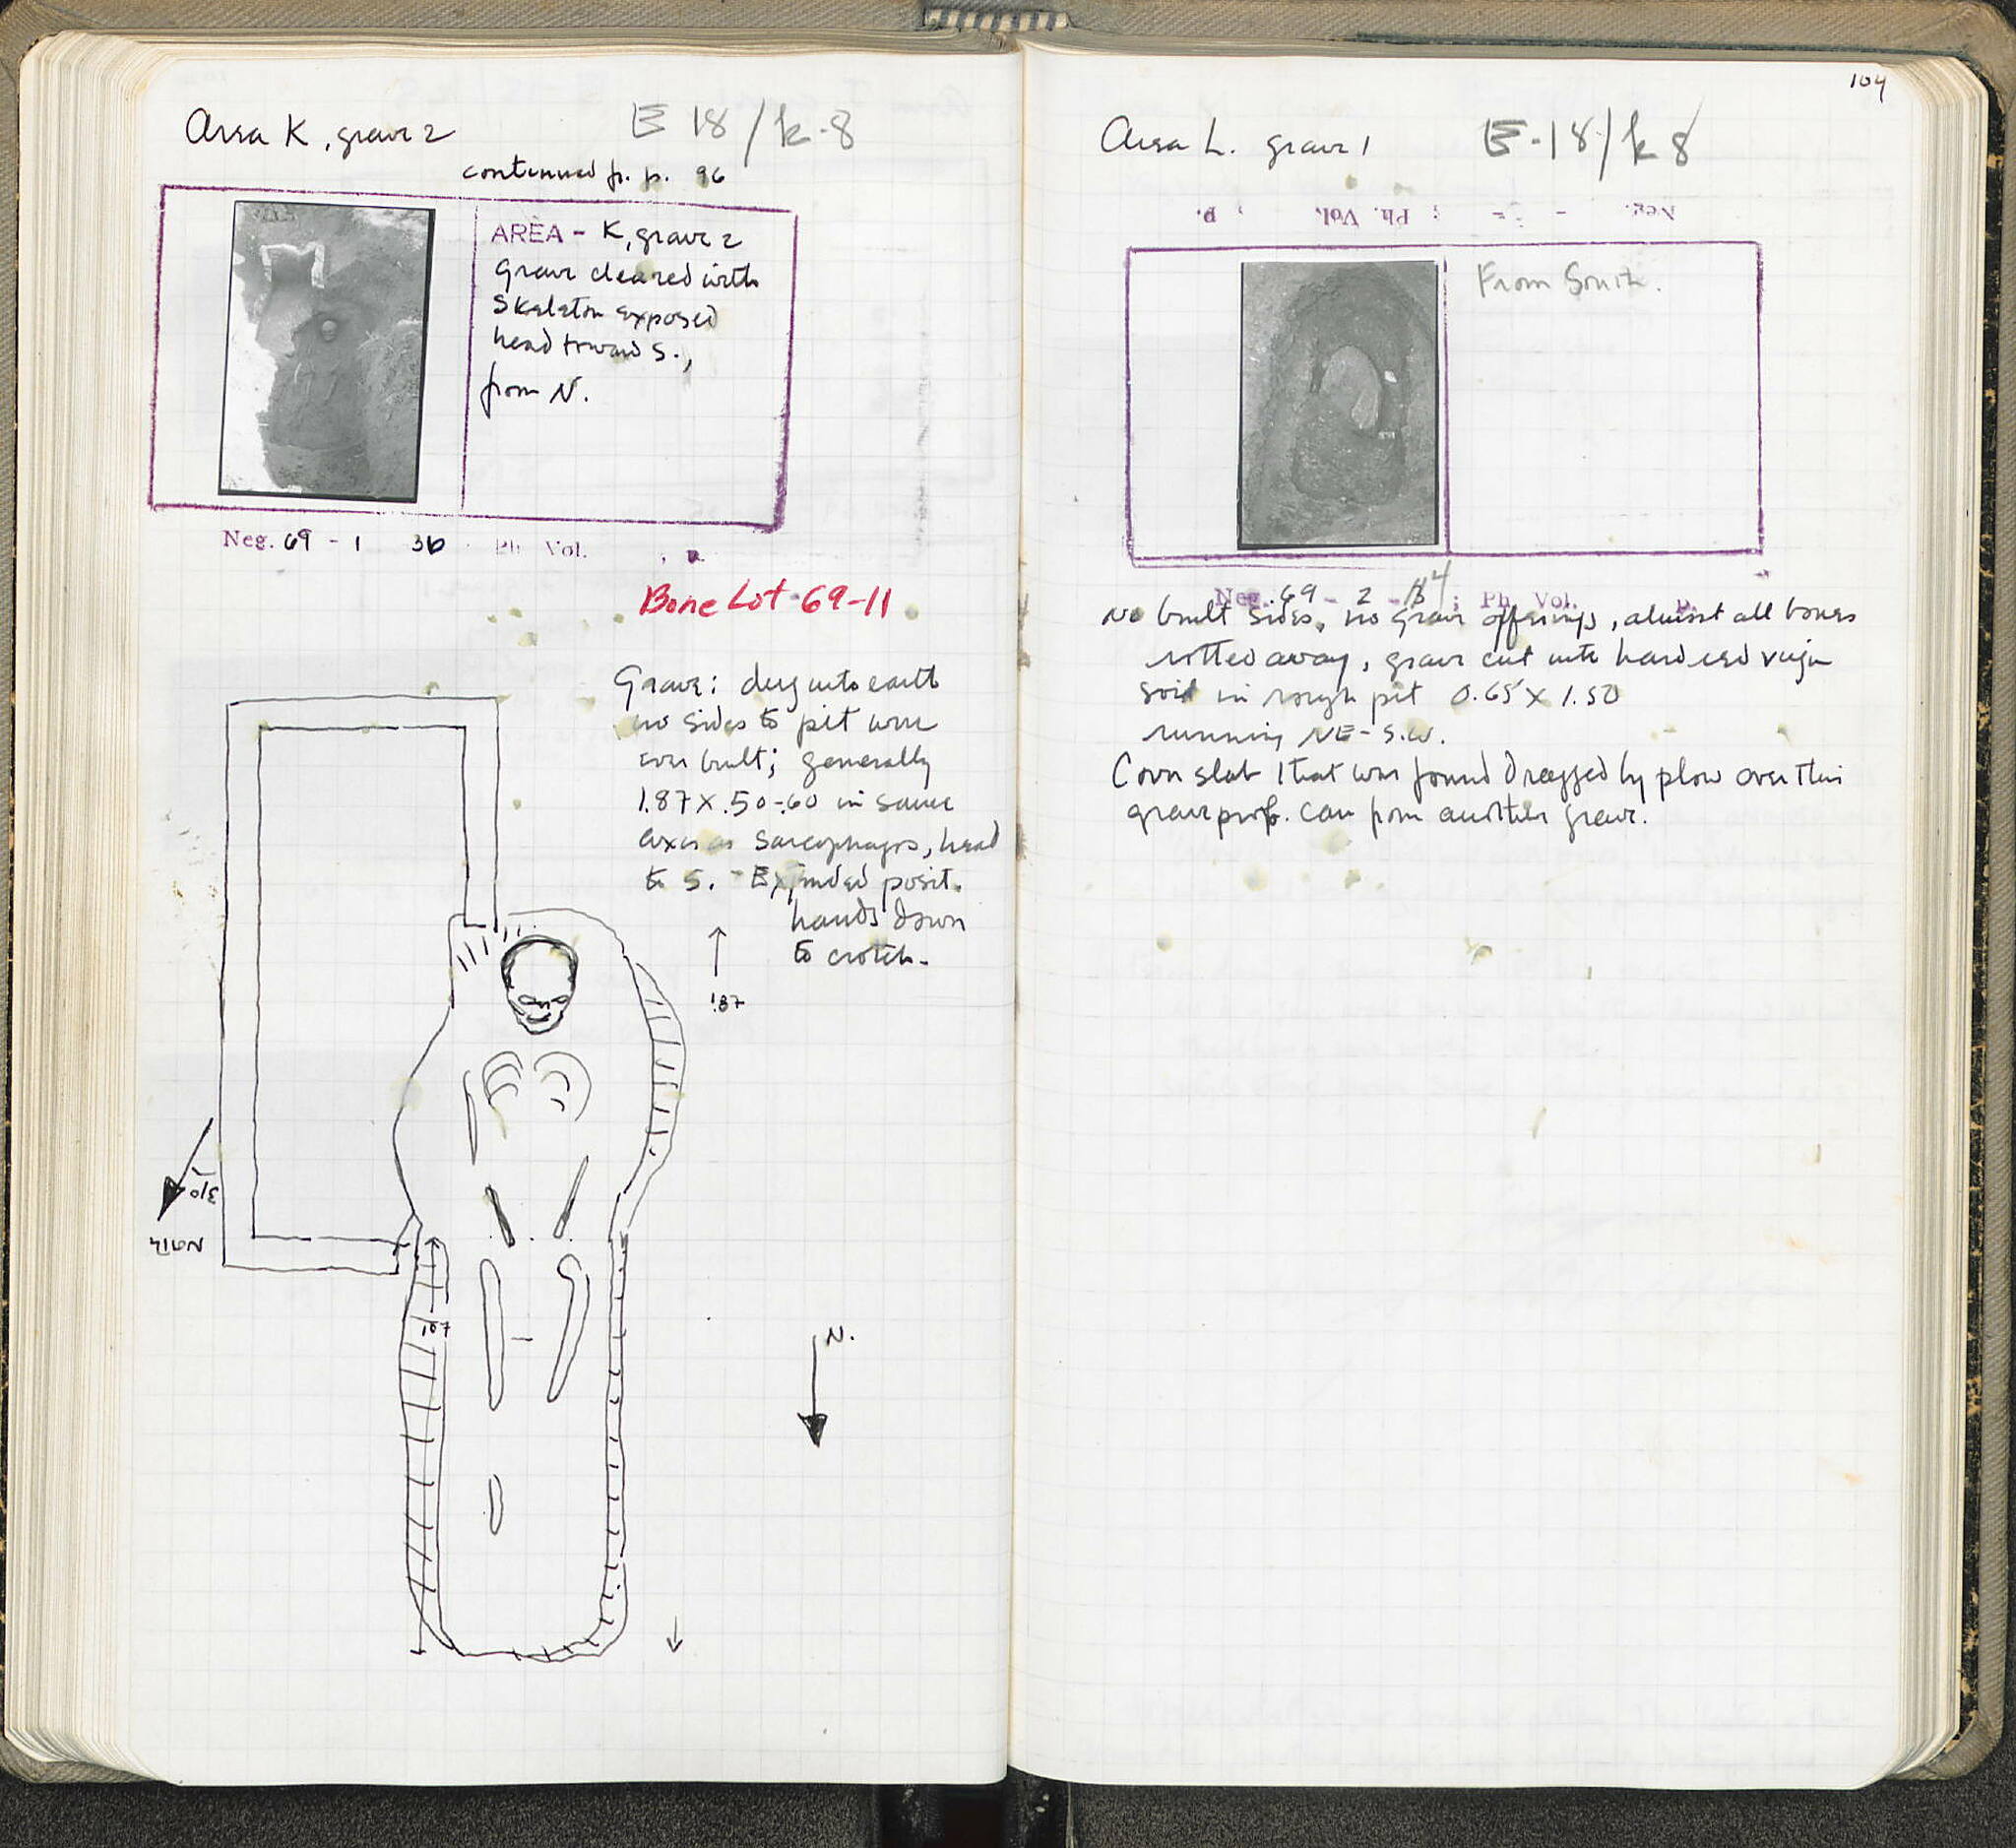 Area K, grave 2
E 18/k-8
continued fr. p. 96
AREA - K, grave 2
Grave cleared with
Skeleton exposed
head toward S.,
from N.
Neg. 69 - 1 36 Ph Vol. , p.
Bone Lot 69-11
Grave: dug into earth
no sides to pit were
ever built; generally
1.87 X .50-.60 in same
axis as sarcophagus, head
to S. - Extended posit.
hands down
to crotch.
1.87
North
1.07
N.
104
Area L. grave 1
E-18/k8
Neg. - - ; Ph. Vol. , p.
From South.
Neg. 69 - 2 - 4 ; Ph. Vol. p.
No built sides, no grave offerings, almost all bones
rotted away, grave cut into hard red virgin
soil in rough pit 0.65 X 1.50
running NE - S.W.
Cover slab that was found dragged by plow over this
grave prob. came from another grave.